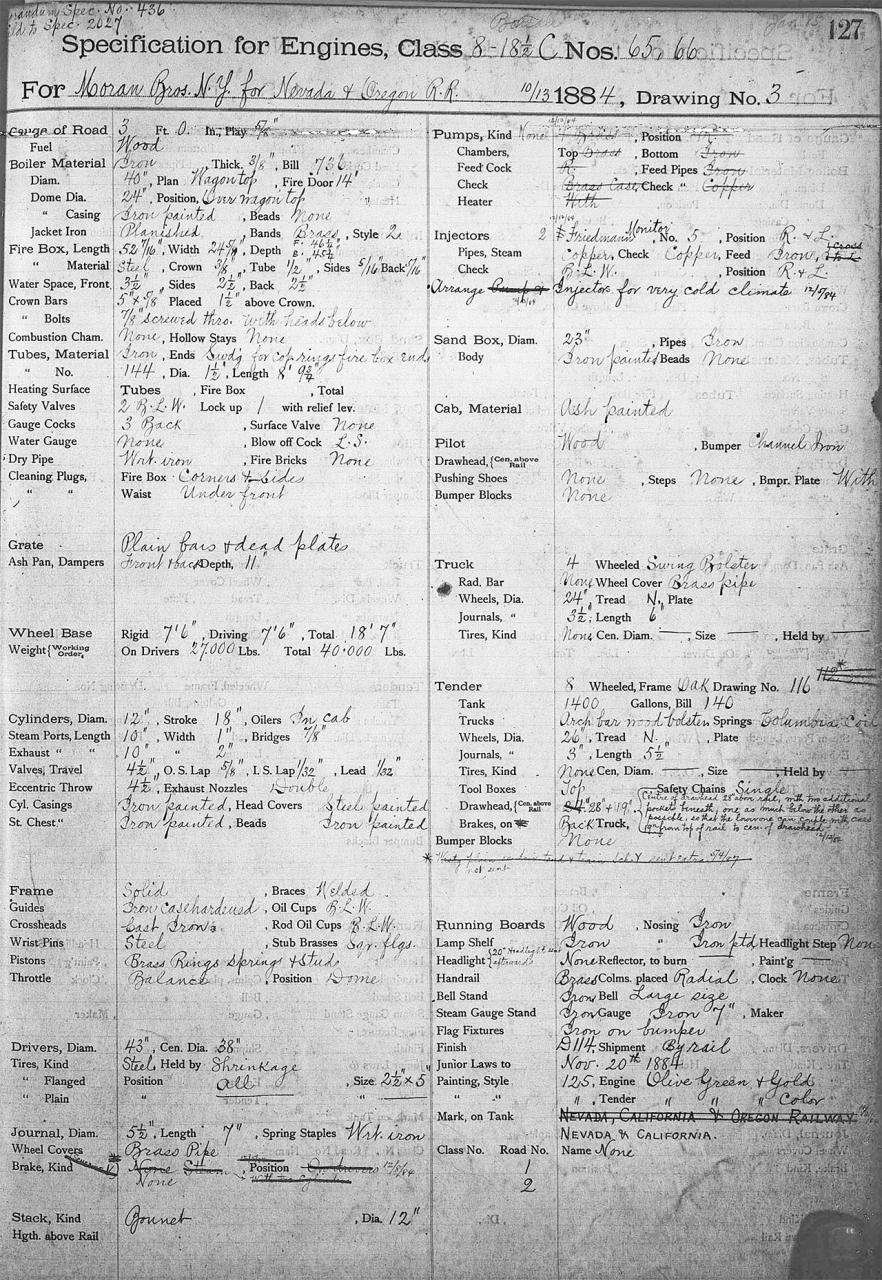 Spec. No. 436
to Spec. 2027
127
Specification for Engines, Class 8-18½ C Nos. 65 66
For Moran Bros. N.Y. for Nevada & Oregon R.R. 10/13 1884, Drawing No. 3
Gauge of Road 3 Ft. 0. In., Play 5/8"
Fuel Wood
Boiler Material Iron , Thick. 3/8", Bill 736
Diam. 40", Plan Wagon top , Fire Door 14"
Dome Dia. 24", Position, Over wagon top
" Casing Iron painted , Beads None
Jacket Iron Planished , Bands Brass, Style 2
Fire Box, Length 52 7/16", Width 24 5/8", Depth F. 46½" B. 45½"
" Material Steel, Crown 3/8, Tube 1/2, Sides 5/16 Back 5/16"
Water Space, Front 3½ Sides 2½, Back 2½"
Crown Bars 5" x 5/8 Placed 1½" above Crown.
" Bolts 7/8" screwed thro. with heads below
Combustion Cham. None, Hollow Stays None
Tubes, Material Iron, Ends Swdg for cop rings fire box end
" No. 144, Dia. 1½", Length 8' 9¾"
Heating Surface Tubes , Fire Box , Total
Safety Valves 2 B.L.W. Lock up 1 with relief lev.
Gauge Cocks 3 Back , Surface Valve None
Water Gauge None , Blow off Cock L.S.
Dry Pipe Wrt. iron , Fire Bricks None
Cleaning Plugs, Fire Box Corners & Sides
" " Waist Under front
Grate Plain bars & dead plates
Ash Pan, Dampers Front & back Depth, 11"
Wheel Base Rigid 7'6", Driving 7'6", Total 18'7"
Weight {Working Order, On Drivers 27000 Lbs. Total 40.000 Lbs.
Cylinders, Diam. 12", Stroke 18", Oilers In cab
Steam Ports, Length 10", Width 1", Bridges 7/8"
Exhaust " " 10" " 2"
Valves, Travel 4½", O. S. Lap 5/8", I. S. Lap 1/32", Lead 1/32"
Eccentric Throw 4½, Exhaust Nozzles Double
Cyl. Casings Iron painted, Head Covers Steel painted
St. Chest " Iron painted, Beads Iron painted
Frame Solid , Braces Welded
Guides Iron casehardened, Oil Cups B.L.W.
Crossheads Cast Iron , Rod Oil Cups B.L.W.
Wrist Pins Steel , Stub Brasses Sqr. flgs.
Pistons Brass Rings Springs & Studs
Throttle Balance , Position Dome
Drivers, Diam. 43", Cen. Dia. 38"
Tires, Kind Steel, Held by Shrinkage
" Flanged Position all " Size 2½" x 5"
" Plain " "
Journal, Diam. 5½", Length 7", Spring Staples Wrt. iron
Wheel Covers Brass Pipe
Brake, Kind None Steam , Position On drivers 12/8/84
None
Stack, Kind Bonnet , Dia. 12"
Hgth. above Rail
Pumps, Kind None , Position R.
Chambers, Top Brass , Bottom Iron
Feed Cock R. , Feed Pipes Iron
Check Brass Case, Check " Copper
Heater With
Injectors 2 # Friedmann Monitor, No. 5, Position R. & L.
Pipes, Steam Copper, Check Copper, Feed Iron, Cross
Check B.L.W. Position R & L
Arrange Injector for very cold climate 12/9/84
Sand Box, Diam. 23" , Pipes Iron
Body Iron painted Beads None
Cab, Material Ash painted
Pilot Wood , Bumper Channel Iron
Drawhead, {Cen. above Rail
Pushing Shoes None , Steps None , Bmpr. Plate With
Bumper Blocks None
Truck 4 Wheeled Swing Bolster
Rad. Bar None Wheel Cover Brass pipe
Wheels, Dia. 24", Tread N., Plate
Journals, " 3½", Length 6"
Tires, Kind None Cen. Diam. , Size , Held by
112*
Tender 8 Wheeled, Frame Oak Drawing No. 116
Tank 1400 Gallons, Bill 140
Trucks Arch bar wood bolster Springs Columbia Coil
Wheels, Dia. 26", Tread N. , Plate
Journals, " 3", Length 5½"
Tires, Kind None Cen. Diam. , Size , Held by
Tool Boxes Top Safety Chains Single
Drawhead, {Cen. above Rail 24" 28" & 19" {Centre of drawhead 28" above rail, with two additional
pockets beneath, one as much below the as
Brakes, on Back Truck, possible, so that the lower one can couple with cars
19" from top of rail to cen. of drawhead
12/12/84
Bumper Blocks None
not sent
Running Boards Wood , Nosing Iron
Lamp Shelf Iron " Iron ptd Headlight Step None
Headlight {20" Headlight sent afterwards None Reflector, to burn , Paint'g
Handrail Brass Colms. placed Radial , Clock None
Bell Stand Iron Bell Large size
Steam Gauge Stand Iron Gauge Iron 7" , Maker
Flag Fixtures Iron on bumper
Finish D114, Shipment By rail
Junior Laws to Nov. 20th 1884
Painting, Style 125, Engine Olive Green & Gold
" " " Tender " " Color
Mark, on Tank NEVADA, CALIFORNIA & OREGON RAILWAY
NEVADA & CALIFORNIA.
Class No. Road No. Name None
1
2